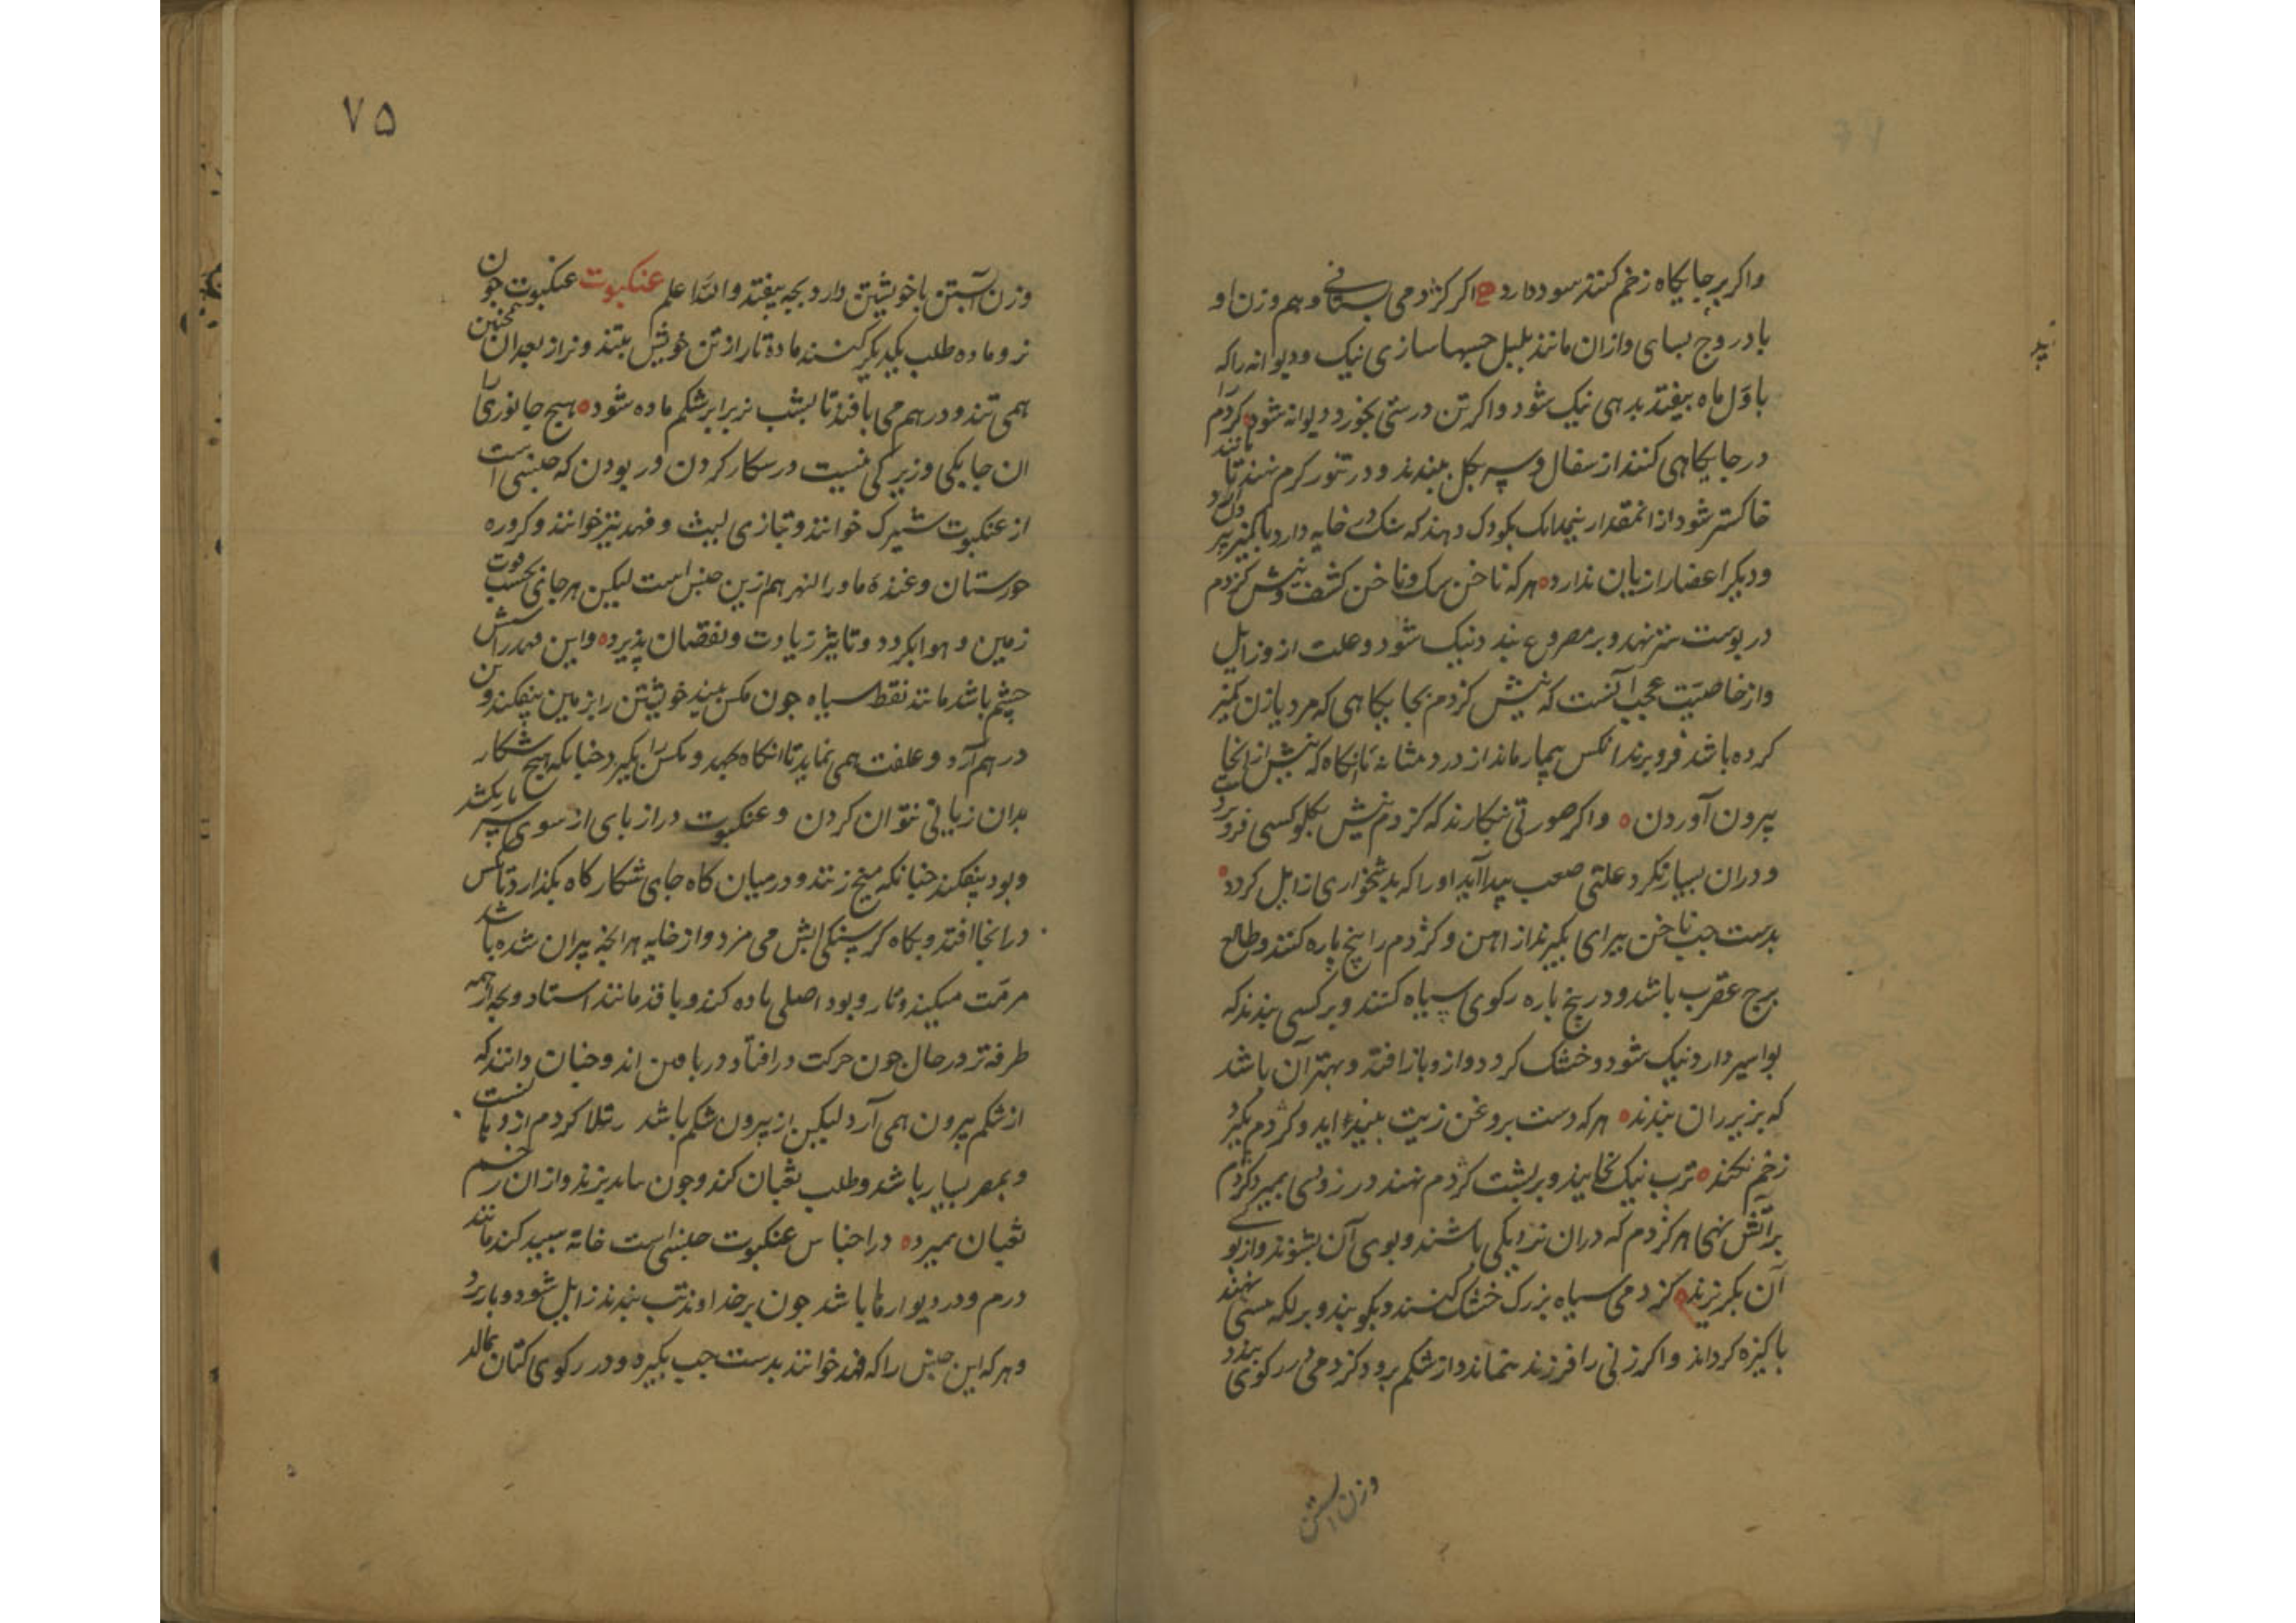 واکر برجایکاه زخم کنند سود دارد اکر کژدمی بستانی و هم وزن او
بادروج بسای وازان مانند پلپل حبها سازی نیک ودیوانه راکه
باول ماه بیفتد بدهی نیک شود واکر تن درستی بخورد دیوانه شود کژدم را
درجایکاهی کنند از سفال وسر بکل ببندند و در تنور کرم نهند تا مانند
خاکستر شود ازانمقدار نیمدانک بکودک دهند که سنک در خایه دارد با کمیز ببرد
ودیکر اعضارا زیان ندارد هرکه ناخن سک وناخن کشف ونیش کژدم
در پوست نهد وبر مصروع بندد نیک شود وعلت ازو زایل
واز خاصیت عجب آنست که نیش کژدم بجایکاهی که مرد یا زن کمیز
کرده باشد فرو برند انکس بیمار ماند از درد مثانه تا انکاه که نیش ازانجا
بیرون آوردن واکر صورتی بنکارند که کژدم نیش بکلو کسی فرو برد
ودران بسیار نکرد علتی صعب پیدا آید اورا که بدشخواری زایل کردد
بدست چپ ناخن پیرای بکیرند از اهن و کژدم را پنج پاره کنند وطالع
برج عقرب باشد ودر پنج پاره رکوی سیاه کنند وبر کسی بندند که
بواسیر دارد نیک شود وخشک کردد وازو باز افتد وبهتر آن باشد
که بزیر ران بندند هرکه دست بروغن زیت بیندا ید وکژدم بکیرد
زخم نکند ترب نیک بخایند وبر پشت کژدم نهند در زوی بمیرد کژدم
برآتش نهی هر کژدم که دران نزدیکی باشند وبوی آن بشنوند وازبوی
آن بکریزند کژدمی سیاه بزرک خشک کنند وبکوبند وبر لکه پیسی نهند
پاکیزه کرداند واکر زنی را فرزند نماند واز شکم برود کژدمی در رکوی بندد
وزن ابستن
۷۵
وزن آبستن باخویشتن دارد بچه بیفتد والله اعلم عنکبوت عنکبوت چون
نر وماده طلب یکدیکر کنند ماده تار از تن خویش بتند ونر از بعد ان همچنین
همی تند ودر هم می بافند تا پشت نر برابر شکم ماده شود هیچ جانوری را
ان چابکی وزیرکی نیست در شکار کردن وربودن که جنسی است
از عنکبوت شیرک خوانند وبتازی لیث و فهد نیز خوانند وکروره
خورستان وغنده ماورا النهر هم ازین جنس است لیکن هرجای بحسب قوت
زمین و هوا بکردد وتاثیر زیادت ونقصان پذیرد واین فهد را شش
چشم باشد مانند نقط سیاه چون مکس بیند خویشتن را بزمین بیفکند وتن
در هم آرد و علفت همی نماید تا انکاه جهد ومکس را بکیرد چنانکه هیچ شکار
بدان زیبائی نتوان کردن وعنکبوت دراز پای از سوی سر تار بکشد
وپود بیفکند چنانکه میخ زنند ودر میان کاه جای شکار کاه بکذارد تا مکس
درانجا افتد وبکاه کرسنکی ابش می مزد واز خایه هرانچه بیران شده باشد
مرمت میکند وتار وپود اصلی ماده کند وبافد مانند استاد وبچه از همه
طرفه تر در حال چون حرکت درافتاد دربافتن اند وچنان دانند که
از شکم بیرون همی آرد لیکن از بیرون شکم باشد رتیلا کژدم ازو
وبمصر بسیار باشد وطلب ثعبان کند وچون بزند وازان زخم
ثعبان بمیرد دراجناس عنکبوت جنسی است خانه سپید کند مانند
درم ودر دیوارها باشد چون بر خداوند تب بندند زایل شود
وهرکه این جنس را که فهد خوانند بدست چپ بکیرد ودر رکوی کتان بمالد